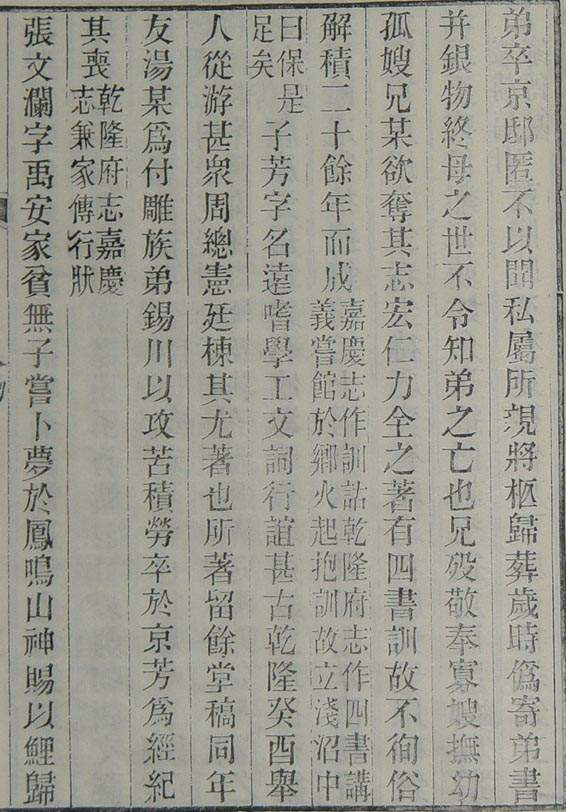 弟卒京邸匿不以聞私屬所親將柩歸葬歲時僞寄弟書
并銀物終母之世不令知弟之亡也兄歿敬奉寡嫂撫幼
孤嫂兄某欲奪其志宏仁力全之著有四書訓故不徇俗
解積二十餘年而成嘉慶志作訓詁乾隆府志作四書講
義嘗館於鄉火起抱訓故立淺沼中
曰保是
足矣子芳字名遠嗜學工文詞行誼甚古乾隆癸酉舉
人從游甚衆周總憲廷棟其尤著也所著留餘堂稿同年
友湯某爲付雕族弟錫川以攻苦積勞卒於京芳爲經紀
其喪乾隆府志嘉慶
志兼家傳行狀
張文瀾字禹安家貧無子嘗卜夢於鳳鳴山神賜以鯉歸